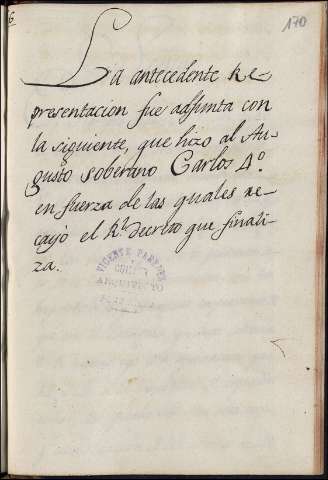 170
La antecedente Re-
presentacion fue adjunta con
la siguiente, que hizo al Au-
gusto Soberano Carlos 4.º
en fuerza de las quales re-
cayó el Rl. Decreto que finali-
za.
VICENTE PAREDES
ARQUITECTO